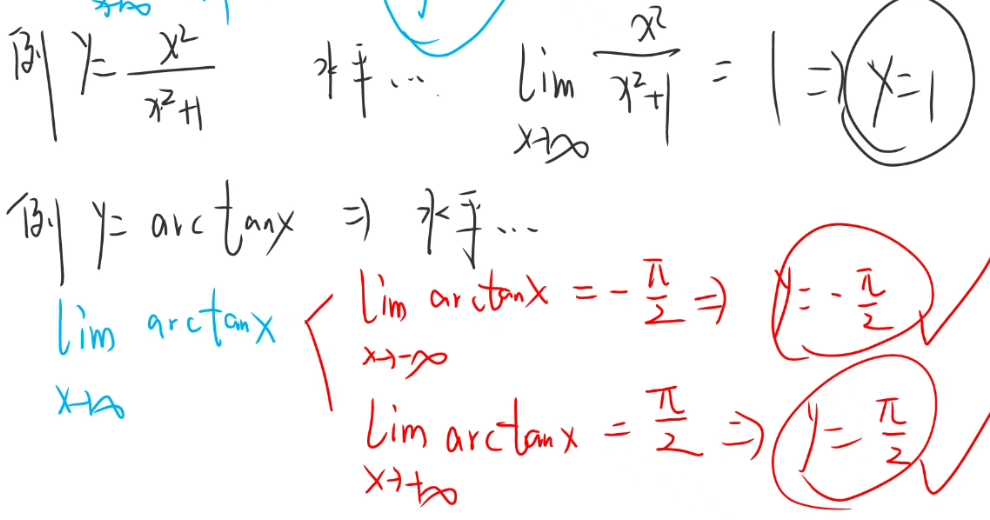 x→∞
例 y = x²/(x²+1) 水平… lim x→∞ x²/(x²+1) = 1 ⇒ y=1
例 y = arctanx ⇒ 水平…
lim x→∞ arctanx
lim x→-∞ arctanx = -π/2 ⇒ y = -π/2 ✓
lim x→+∞ arctanx = π/2 ⇒ y = π/2 ✓